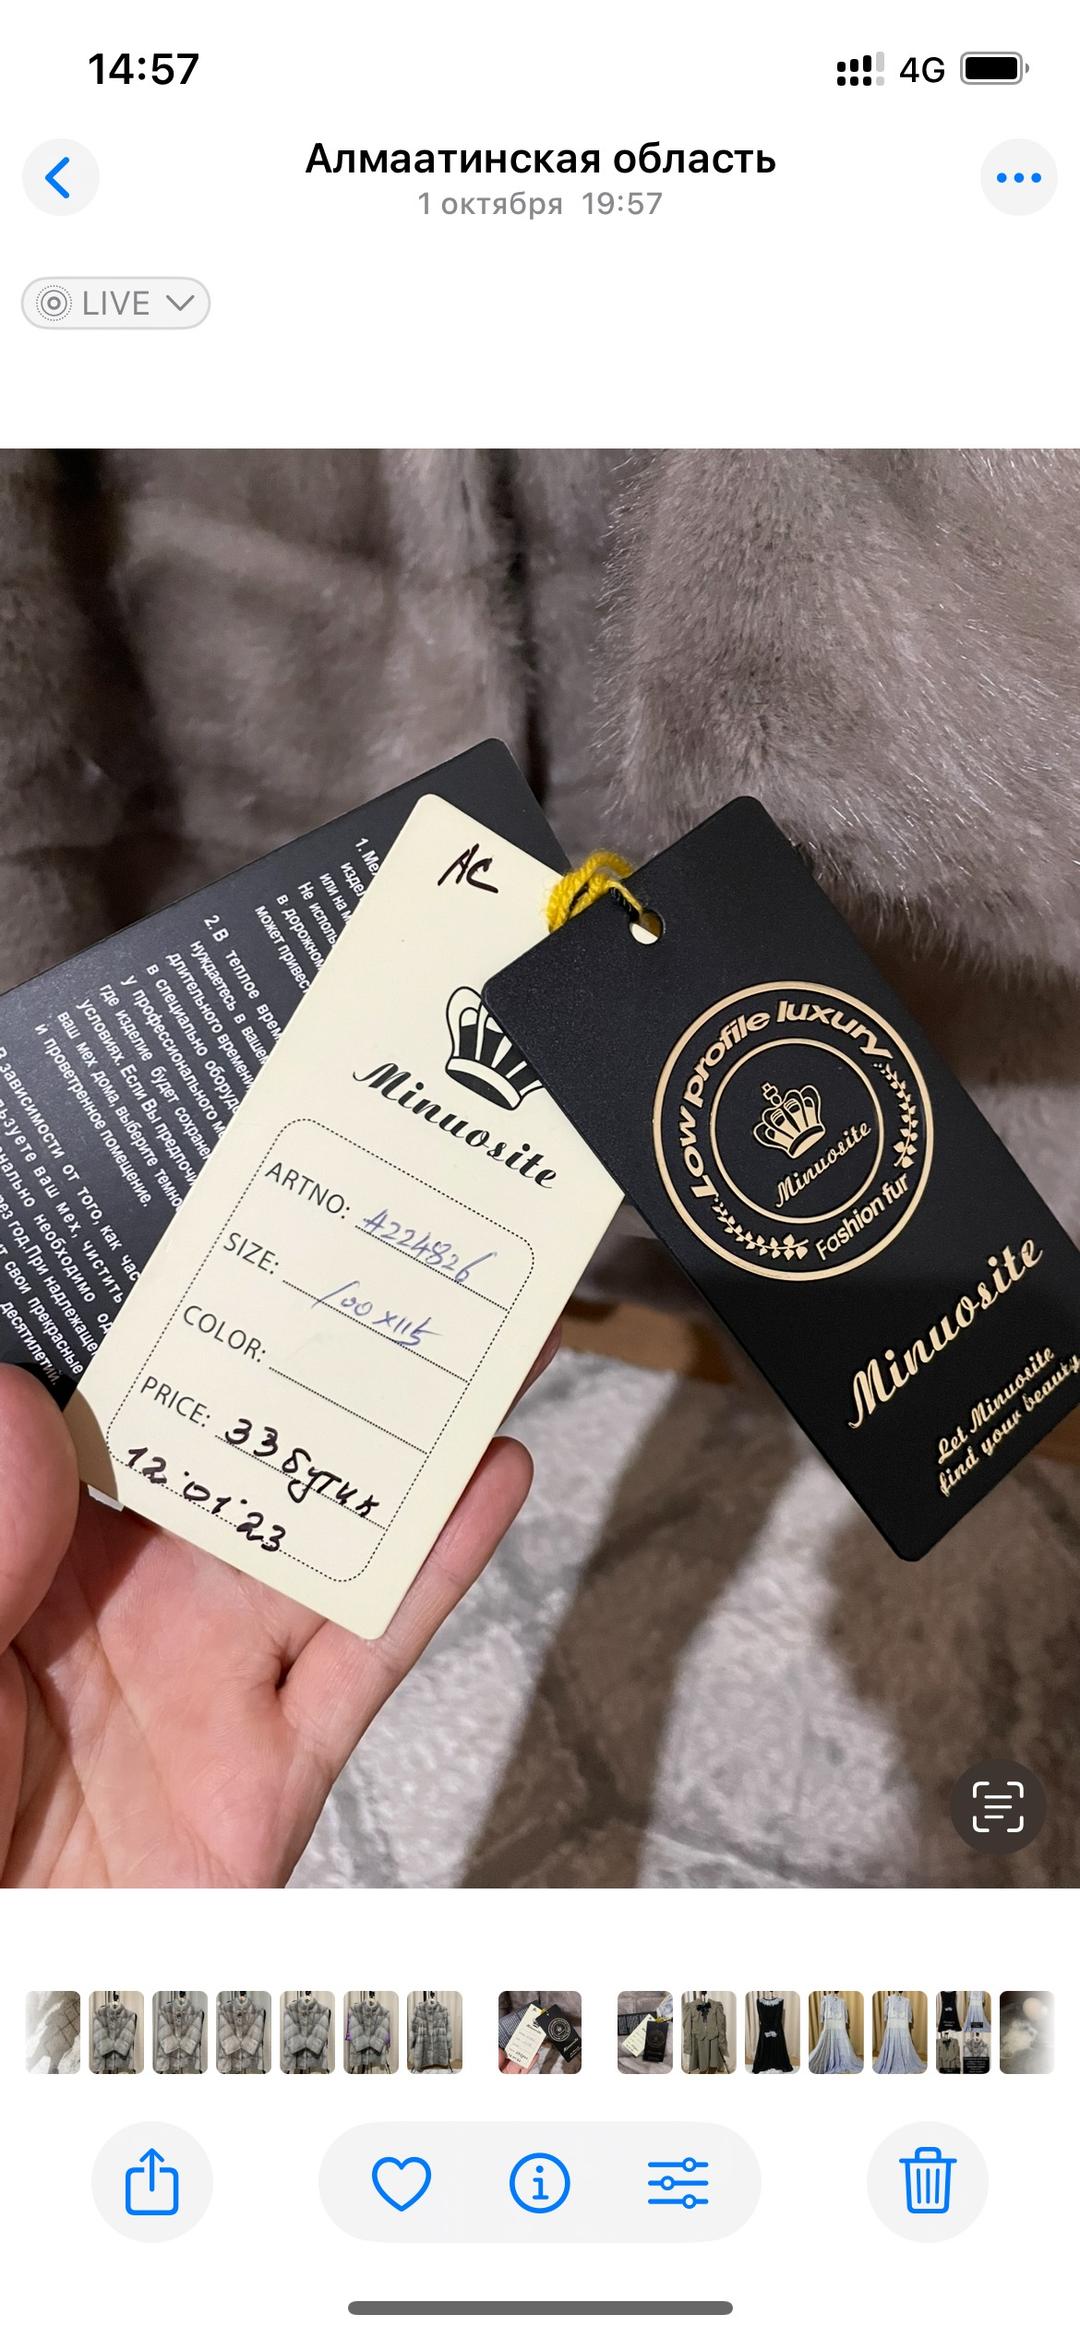 14:57
4G
Алмаатинская область
1 октября 19:57
LIVE
1. Ме
издел
или на м
Не исполь
в дорожном
может привес
2. В теплое врем
нуждаетесь в вашем
длительного времени
в специально оборудо
у профессионального м
где изделие будет сохране
условиях. Если Вы предпочи
ваш мех дома, выберите темно
и проветренное помещение.
зависимости от того, как час
льзуете ваш мех, чистить
необходимо од
ез год. При надлежаще
т свои прекрасные
десятилетий.
АС
Minuosite
ARTNO: A224826
SIZE: 100x115
COLOR:
PRICE: 33 бутик
12.01.23
Low profile luxury
Minuosite
Fashion fur
Minuosite
Let Minuosite
find your beauty